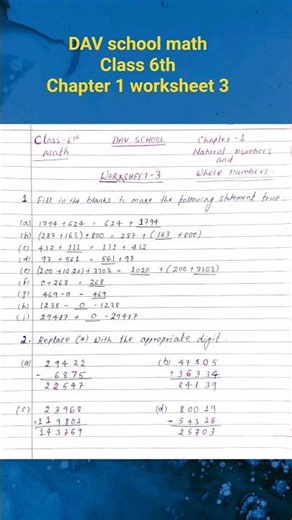 DAV school math
Class 6th
Chapter 1 worksheet 3
Class-6th DAV SCHOOL Chapter-1
Math Natural numbers
and
WORKSHEET-3 Whole numbers
1 Fill in the blanks to make the following statement true.
(a) 1794 + 624 = 624 + 1794
(b) (287+163)+800 = 287 + (163 + 800)
(c) 432 + 111 = 111 + 432
(d) 97 + 561 = 561 + 97
(e) (200+1020)+3303 = 1020 + (200+3303)
(f) 0+268 = 268
(g) 469-0 = 469
(h) 1238 - 0 = 1238
(i) 29487 + 0 = 29487
2. Replace (*) with the appropriate digit.
(a) 29422 (b) 47805
- 6875 +36334
22547 84139
(c) 23968 (d) 80019
+119801 - 54316
143769 25703